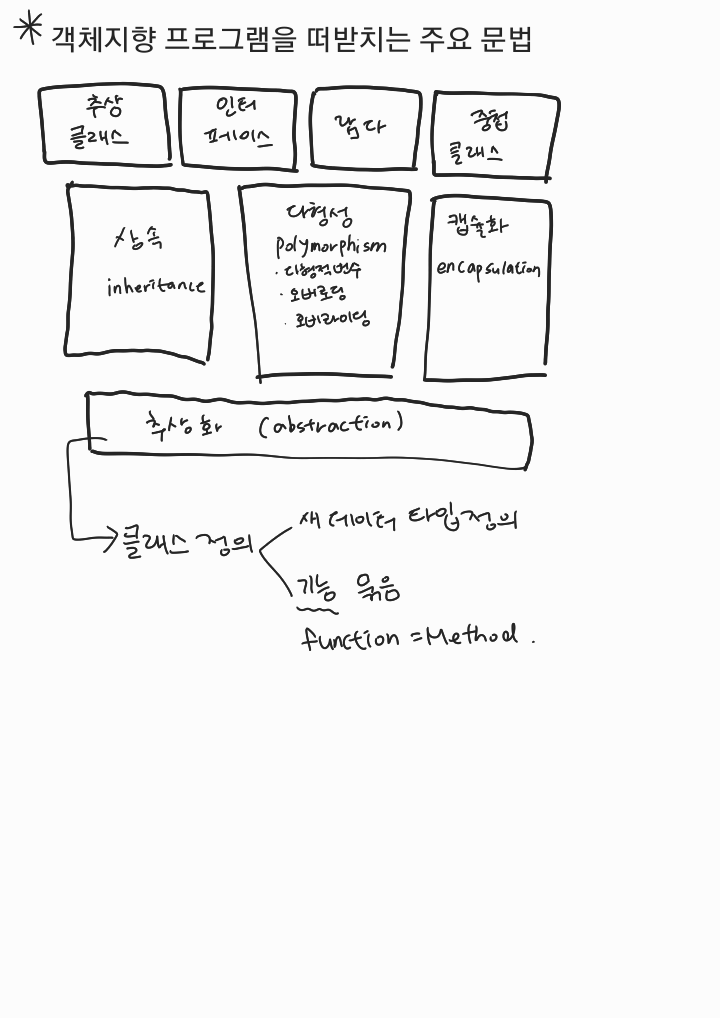 * 객체지향 프로그램을 떠받치는 주요 문법
추상
클래스
인터
페이스
람다
중첩
클래스
상속
inheritance
다형성
polymorphism
· 다형적변수
· 오버로딩
· 오버라이딩
캡슐화
encapsulation
추상화 (abstraction)
클래스 정의
새 데이터 타입정의
기능 묶음
function = Method.